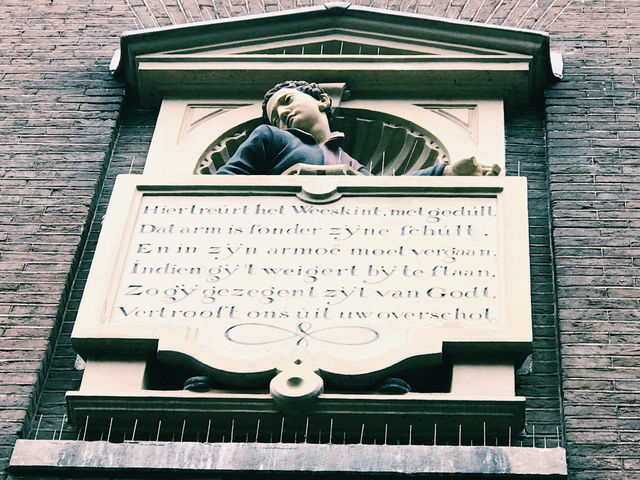 Hier treurt het Weeskint, met gedult.
Dat arm is sonder zÿne schult.
En in zÿn armoe moet vergaan.
Indien gÿ't weigert bÿ te staan.
Zo gÿ gezegent zÿt van Godt.
Vertroost ons uit uw overschot.